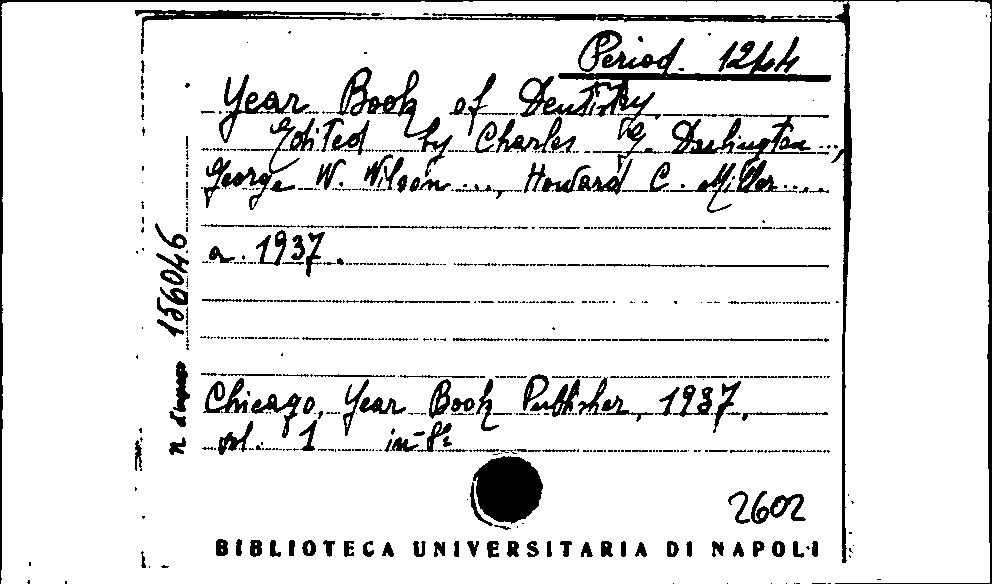 Period. 1244
Year Book of Dentistry.
Edited by Charles G. Darlington...,
George W. Wilson..., Howard C. Miller....
a. 1937.
n. d'ingresso 156046
Chicago, Year Book Publisher, 1937.
vol. 1 in-8º
2602
BIBLIOTECA UNIVERSITARIA DI NAPOLI